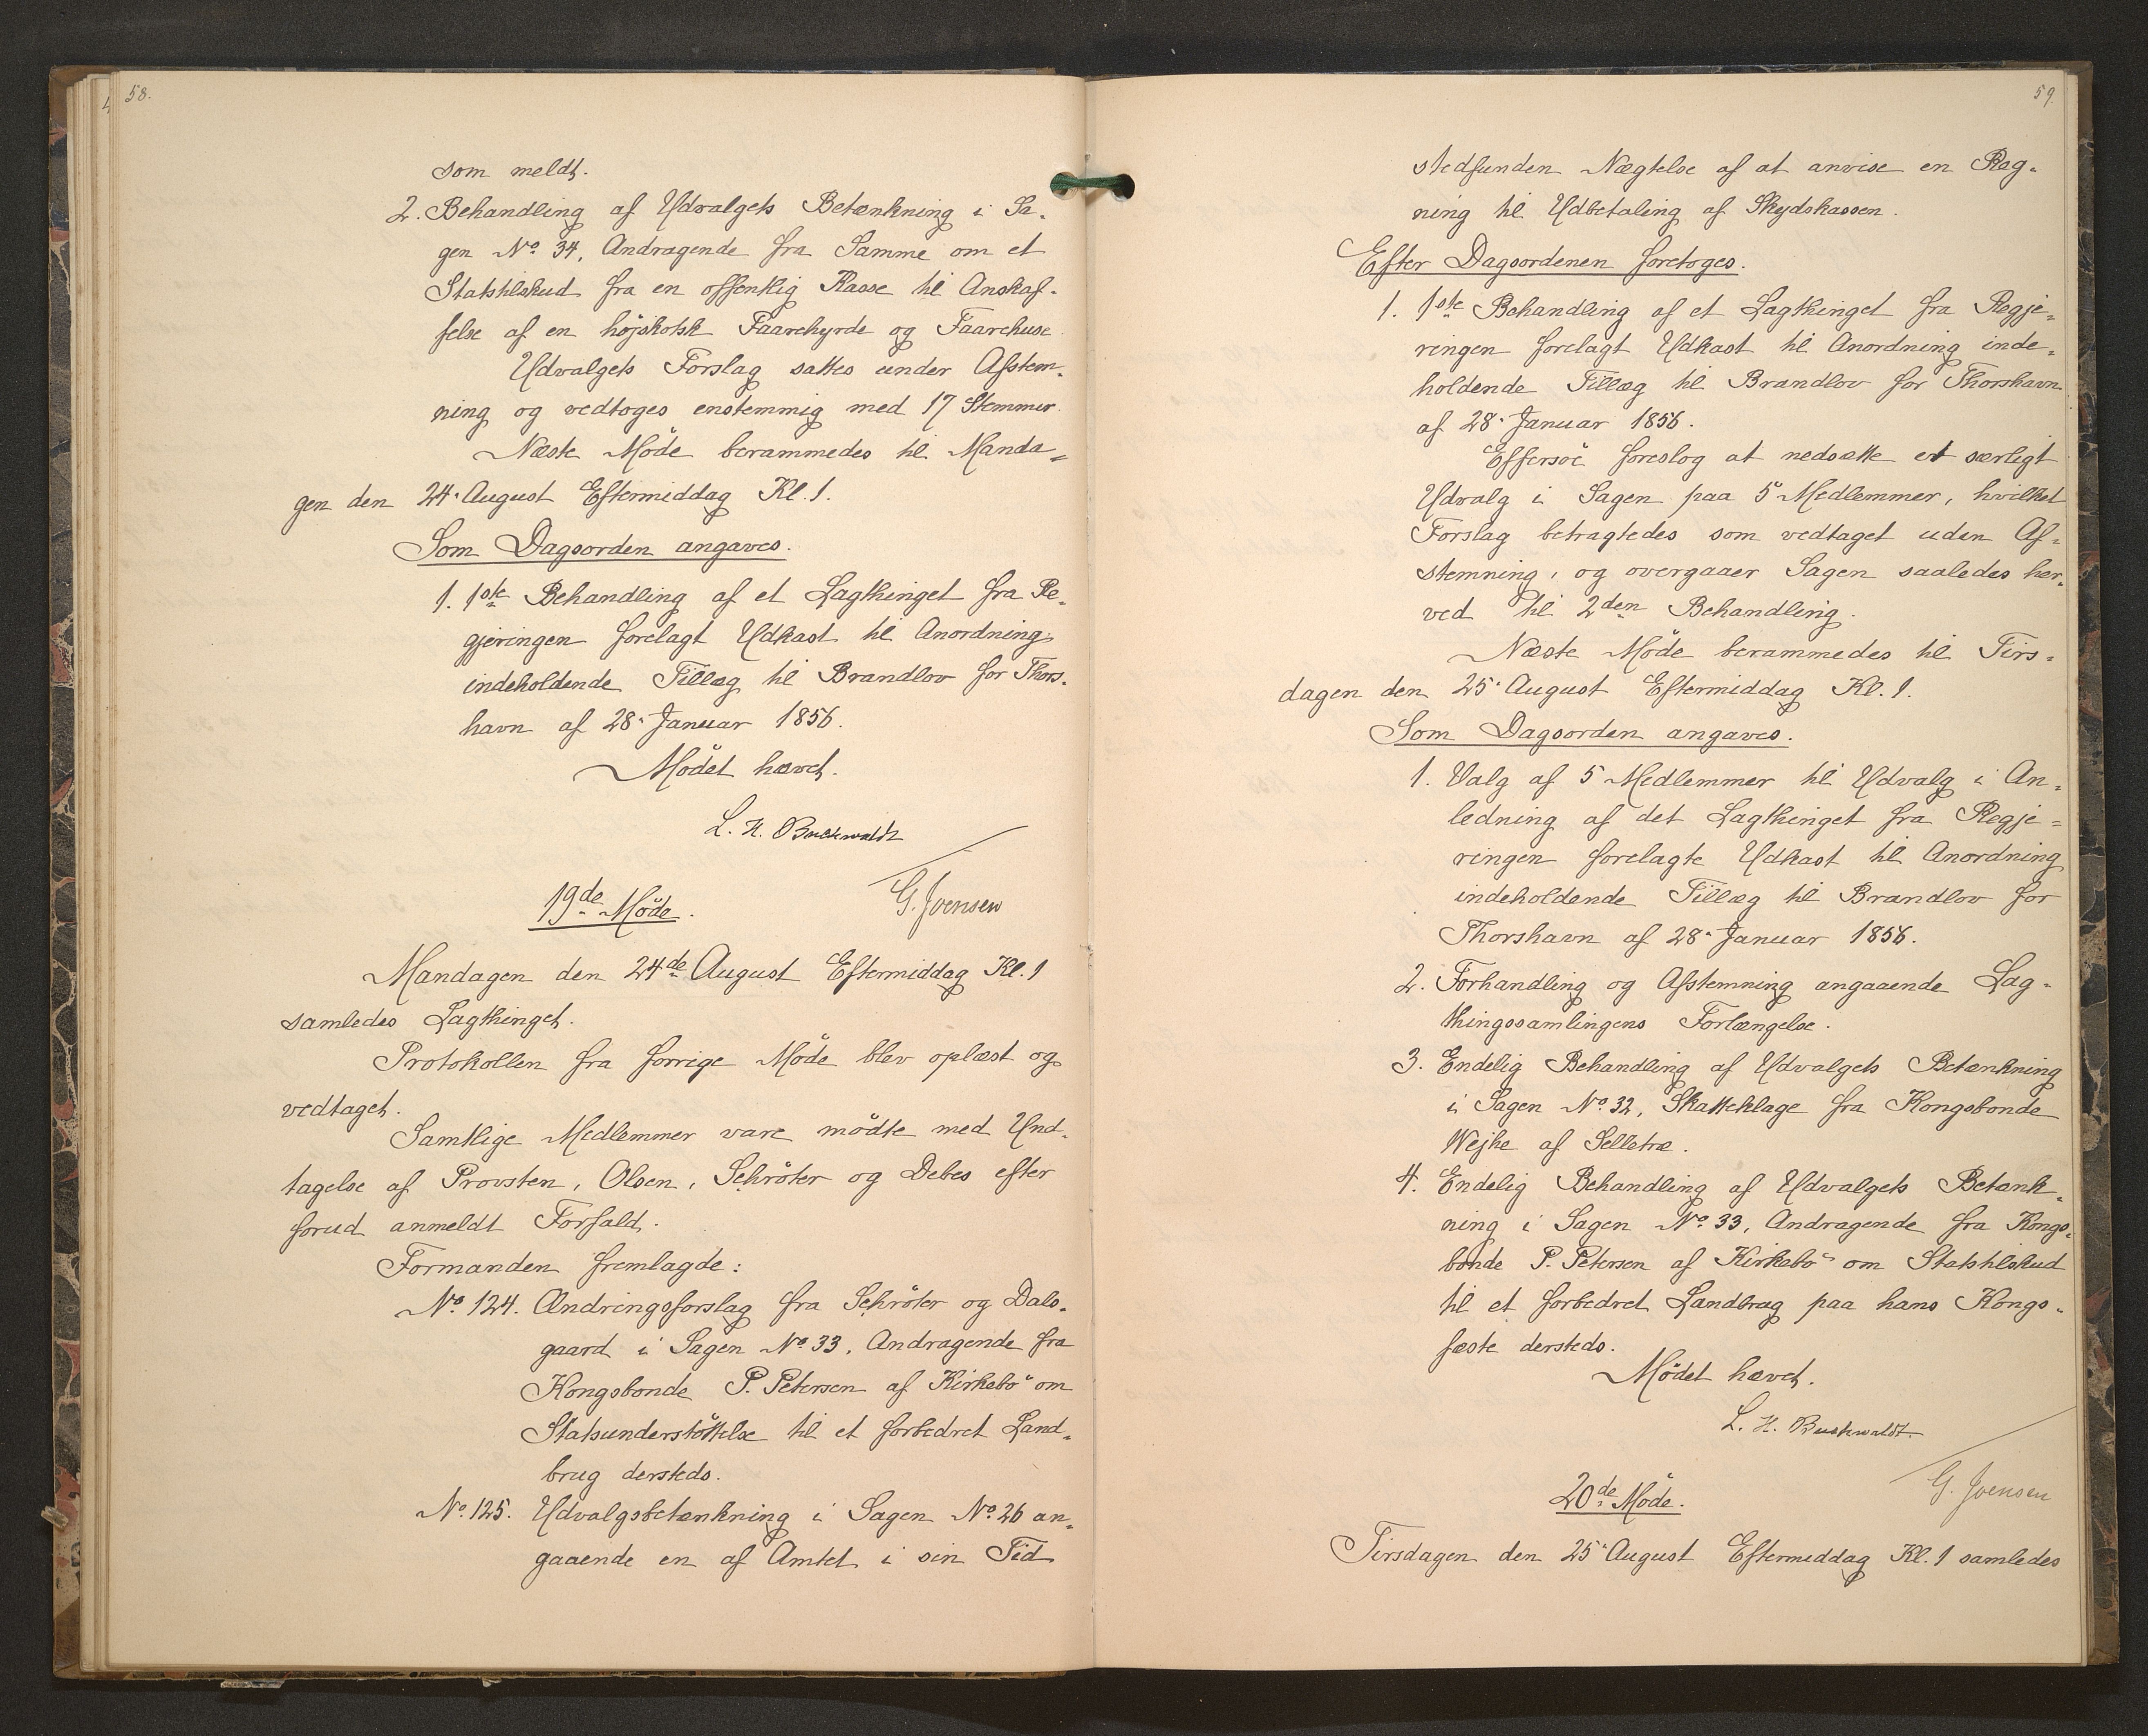 58.
som meldt.
2. Behandling af Udvalgets Betænkning i Sa-
gen No. 34, Andragende fra Samme om et
Statstilskud fra en offentlig Kasse til Anskaf-
felse af en højskotsk Faarehyrde og Faarehuse
Udvalgets Forslag sattes under Afstem-
ning og vedtoges enstemmig med 17 Stemmer.
Næste Möde berammedes til Manda-
gen den 24. August Eftermiddag Kl. 1.
Som Dagsorden angaves.
1. 1ste Behandling af et Lagthinget fra Re-
gjeringen forelagt Udkast til Anordning
indeholdende Tillæg til Brandlov for Thors-
havn af 28. Januar 1856.
Mödet hævet.
L. H. Buchwaldt
G. Joensen
19de Möde.
Mandagen den 24de August Eftermiddag Kl. 1
samledes Lagthinget.
Protokollen fra forrige Möde blev oplæst og
vedtaget.
Samtlige Medlemmer vare mödte med Und-
tagelse af Provsten, Olsen, Schröter og Debes efter
forud anmeldt Forfald.
Formanden fremlagde:
No. 124. Ændringsforslag fra Schröter og Dals-
gaard i Sagen No. 33, Andragende fra
Kongsbonde P. Petersen af Kirkebö om
Statsunderstöttelse til et forbedret Land-
brug dersteds.
No. 125. Udvalgsbetænkning i Sagen No. 26 an-
gaaende en af Amtet i sin Tid
59.
stedfunden Nægtelse af at anvise en Reg-
ning til Udbetaling af Skydskassen.
Efter Dagsordenen foretoges.
1. 1ste Behandling af et Lagthinget fra Regje-
ringen forelagt Udkast til Anordning inde-
holdende Tillæg til Brandlov for Thorshavn
af 28. Januar 1856.
Effersöe foreslog at nedsætte et særligt
Udvalg i Sagen paa 5 Medlemmer, hvilket
Forslag betragtedes som vedtaget uden Af-
stemning, og overgaaer Sagen saaledes her-
ved til 2den Behandling.
Næste Möde berammedes til Tirs-
dagen den 25. August Eftermiddag Kl. 1.
Som Dagsorden angaves.
1. Valg af 5 Medlemmer til Udvalg i An-
ledning af det Lagthinget fra Regje-
ringen forelagte Udkast til Anordning
indeholdende Tillæg til Brandlov for
Thorshavn af 28. Januar 1856.
2. Forhandling og Afstemning angaaende Lag-
thingssamlingens Forlængelse.
3. Endelig Behandling af Udvalgets Betænkning
i Sagen No. 32, Skatteklage fra Kongsbonde
Wejhe af Selletræ.
4. Endelig Behandling af Udvalgets Betænk-
ning i Sagen No. 33, Andragende fra Kongs-
bonde P. Petersen af Kirkebö om Statstilskud
til et forbedret Landbrug paa hans Kongs-
fæste dersteds.
Mödet hævet.
L. H. Buchwaldt.
G. Joensen
20de Möde.
Tirsdagen den 25. August Eftermiddag Kl. 1 samledes